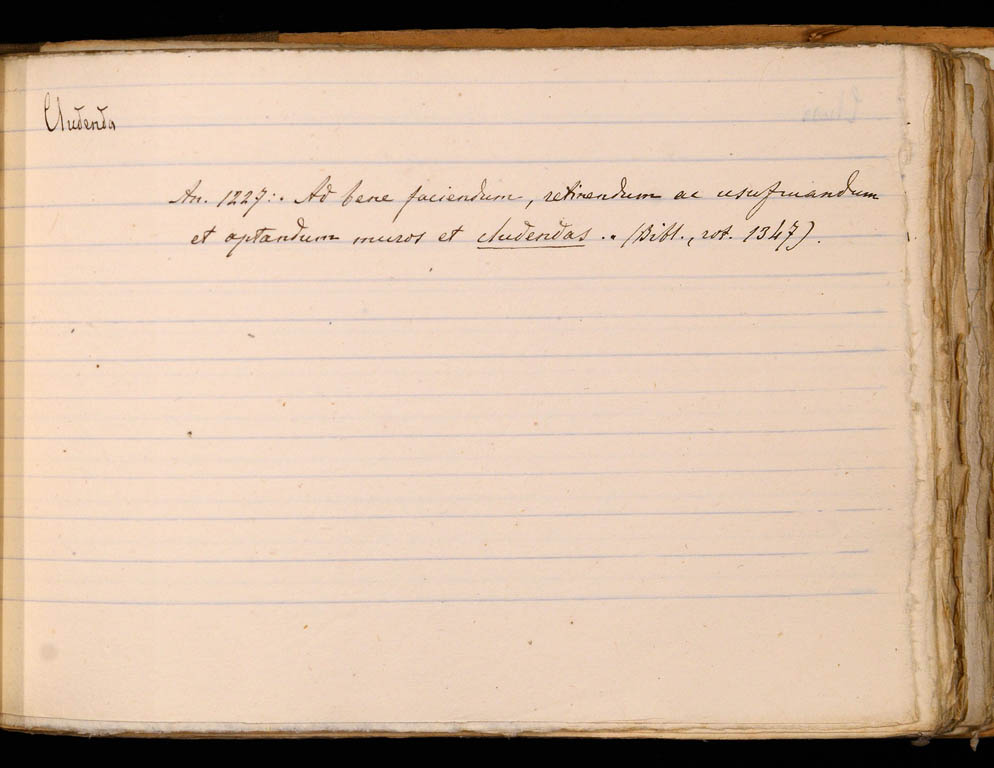 Cludenda
An. 1227: . Ad bene faciendum, retinendum ac usufruandum
et aptandum muros et cludendas . . (Bibl., rot. 1347).